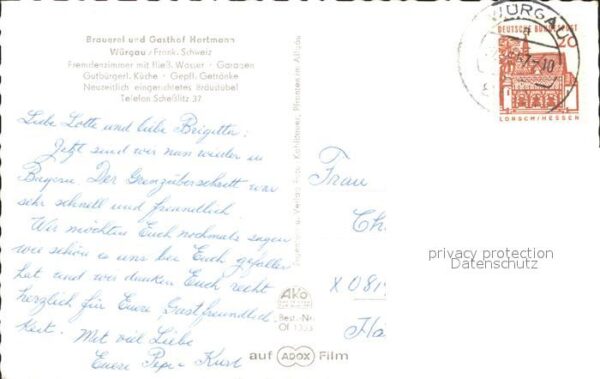 Brauerei und Gasthof Hartmann
Würgau / Fränk. Schweiz
Fremdenzimmer mit fließ. Wasser - Garagen
Gutbürgerl. Küche - Gepfl. Getränke
Neuzeitlich eingerichtetes Bräustübel
Telefon Scheßlitz 37
WÜRGAU
DEUTSCHE BUNDESPOST
20
LORSCH/HESSEN
Liebe Lotte und liebe Brigitte:
Jetzt sind wir nun wieder in
Bayern. Der Grenzübertritt war
sehr schnell und freundlich.
Wir möchten Euch nochmals sagen
wie schön es uns bei Euch gefallen
hat und wir danken Euch recht
herzlich für Eure Gastfreundlich
keit. Mit viel Liebe
Eure Pepi Kurt
Frau
Ch
X 081
Ha
Ako
Best.-Nr.
auf ADOX Film
privacy protection
Datenschutz